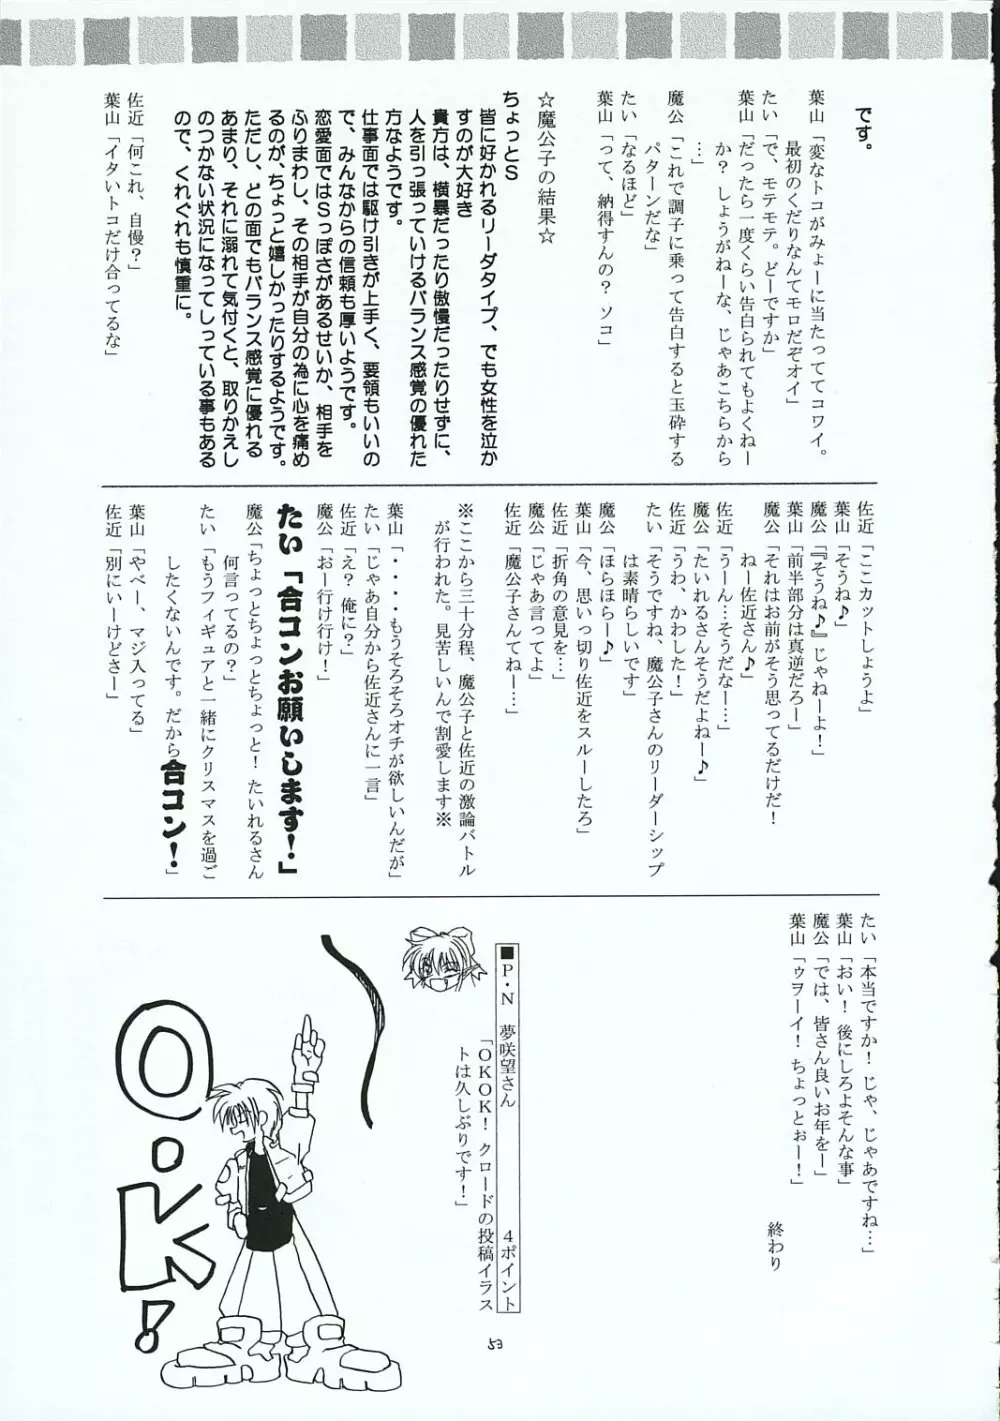 です。
葉山「変なトコがみょーに当たっててコワイ。
最初のくだりなんてモロだぞオイ」
たい「で、モテモテ。どーですか」
葉山「だったら一度くらい告白られてもよくねー
か? しょうがねーな、じゃあこちらから
…」
魔公「これで調子に乗って告白すると玉砕する
パターンだな」
たい「なるほど」
葉山「って、納得すんの? ソコ」
☆魔公子の結果☆
ちょっとS
皆に好かれるリーダタイプ、でも女性を泣か
すのが大好き
貴方は、横暴だったり傲慢だったりせずに、
人を引っ張っていけるバランス感覚の優れた
方なようです。
仕事面では駆け引きが上手く、要領もいいの
で、みんなからの信頼も厚いようです。
恋愛面ではSっぽさがあるせいか、相手を
ふりまわし、その相手が自分の為に心を痛め
るのが、ちょっと嬉しかったりするようです。
ただし、どの面でもバランス感覚に優れる
あまり、それに溺れて気付くと、取りかえし
のつかない状況になってしっている事もある
ので、くれぐれも慎重に。
佐近「何これ、自慢?」
葉山「イタいトコだけ合ってるな」
佐近「ここカットしょうよ」
葉山「そうね♪」
魔公「『そうね♪』じゃねーよ!」
葉山「前半部分は真逆だろー」
魔公「それはお前がそう思ってるだけだ!
ねー佐近さん♪」
佐近「うーん…そうだなー…」
魔公「たいれるさんそうだよねー♪」
佐近「うわ、かわした!」
たい「そうですね、魔公子さんのリーダーシップ
は素晴らしいです」
魔公「ほらほらー♪」
葉山「今、思いっ切り佐近をスルーしたろ」
佐近「折角の意見を…」
魔公「じゃあ言ってよ」
佐近「魔公子さんてねー…」
※ここから三十分程、魔公子と佐近の激論バトル
が行われた。見苦しいんで割愛します※
葉山「・・・・もうそろそろオチが欲しいんだが」
たい「じゃあ自分から佐近さんに一言」
佐近「え? 俺に?」
魔公「おー行け行け!」
たい「合コンお願いします!」
魔公「ちょっとちょっとちょっと! たいれるさん
何言ってるの?」
たい「もうフィギュアと一緒にクリスマスを過ご
したくないんです。だから合コン!」
葉山「やべー、マジ入ってる」
佐近「別にいーけどさー」
たい「本当ですか! じゃ、じゃあですね…」
葉山「おい! 後にしろよそんな事」
魔公「では、皆さん良いお年をー」
葉山「ゥヲーイ! ちょっとぉー!」
終わり
■P・N 夢咲望さん 4ポイント
「OKOK! クロードの投稿イラス
トは久しぶりです!」
O・K!
53